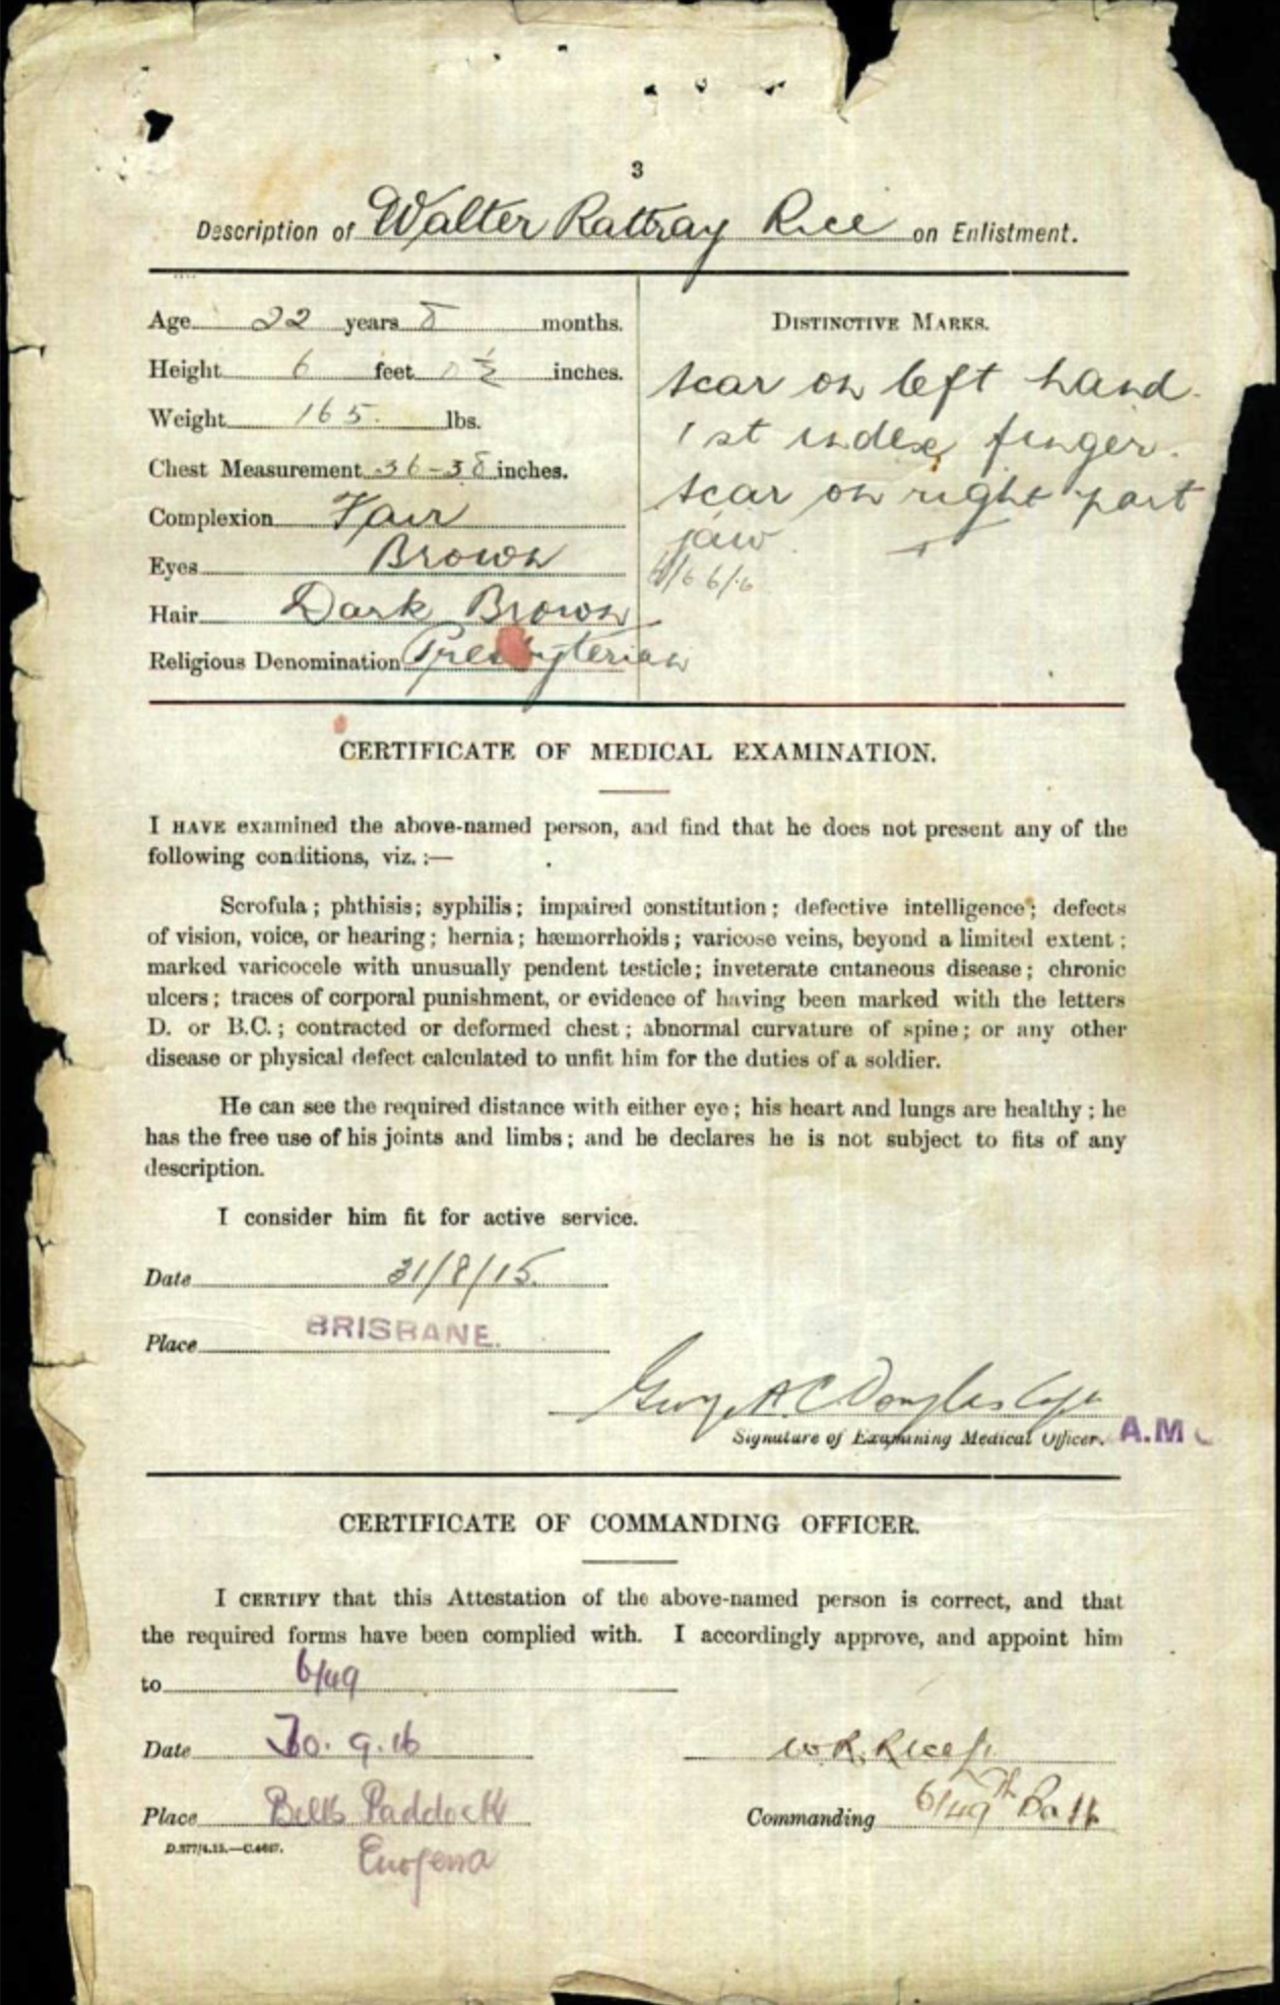 3
Description of Walter Rattray Rice on Enlistment.
Age 22 years 8 months.
Height 6 feet 0½ inches.
Weight 165. lbs.
Chest Measurement 36-38 inches.
Complexion Fair
Eyes Brown
Hair Dark Brown
Religious Denomination Presbyterian
DISTINCTIVE MARKS.
scar on left hand.
1st index finger.
scar on right part
jaw
6/6 6/6
CERTIFICATE OF MEDICAL EXAMINATION.
I HAVE examined the above-named person, and find that he does not present any of the
following conditions, viz. :—
Scrofula ; phthisis; syphilis; impaired constitution; defective intelligence; defects
of vision, voice, or hearing; hernia; hæmorrhoids; varicose veins, beyond a limited extent;
marked varicocele with unusually pendent testicle; inveterate cutaneous disease; chronic
ulcers; traces of corporal punishment, or evidence of having been marked with the letters
D. or B.C.; contracted or deformed chest; abnormal curvature of spine; or any other
disease or physical defect calculated to unfit him for the duties of a soldier.
He can see the required distance with either eye; his heart and lungs are healthy; he
has the free use of his joints and limbs; and he declares he is not subject to fits of any
description.
I consider him fit for active service.
Date 31/8/15.
Place BRISBANE.
George A C Douglas Capt
Signature of Examining Medical Officer. A.M
CERTIFICATE OF COMMANDING OFFICER.
I CERTIFY that this Attestation of the above-named person is correct, and that
the required forms have been complied with. I accordingly approve, and appoint him
to 6/49
Date 30. 9. 16
W. R. Rice
Place Bells Paddock
Enogera
Commanding 6/49th Batt
D.377/4.15.—C.4667.